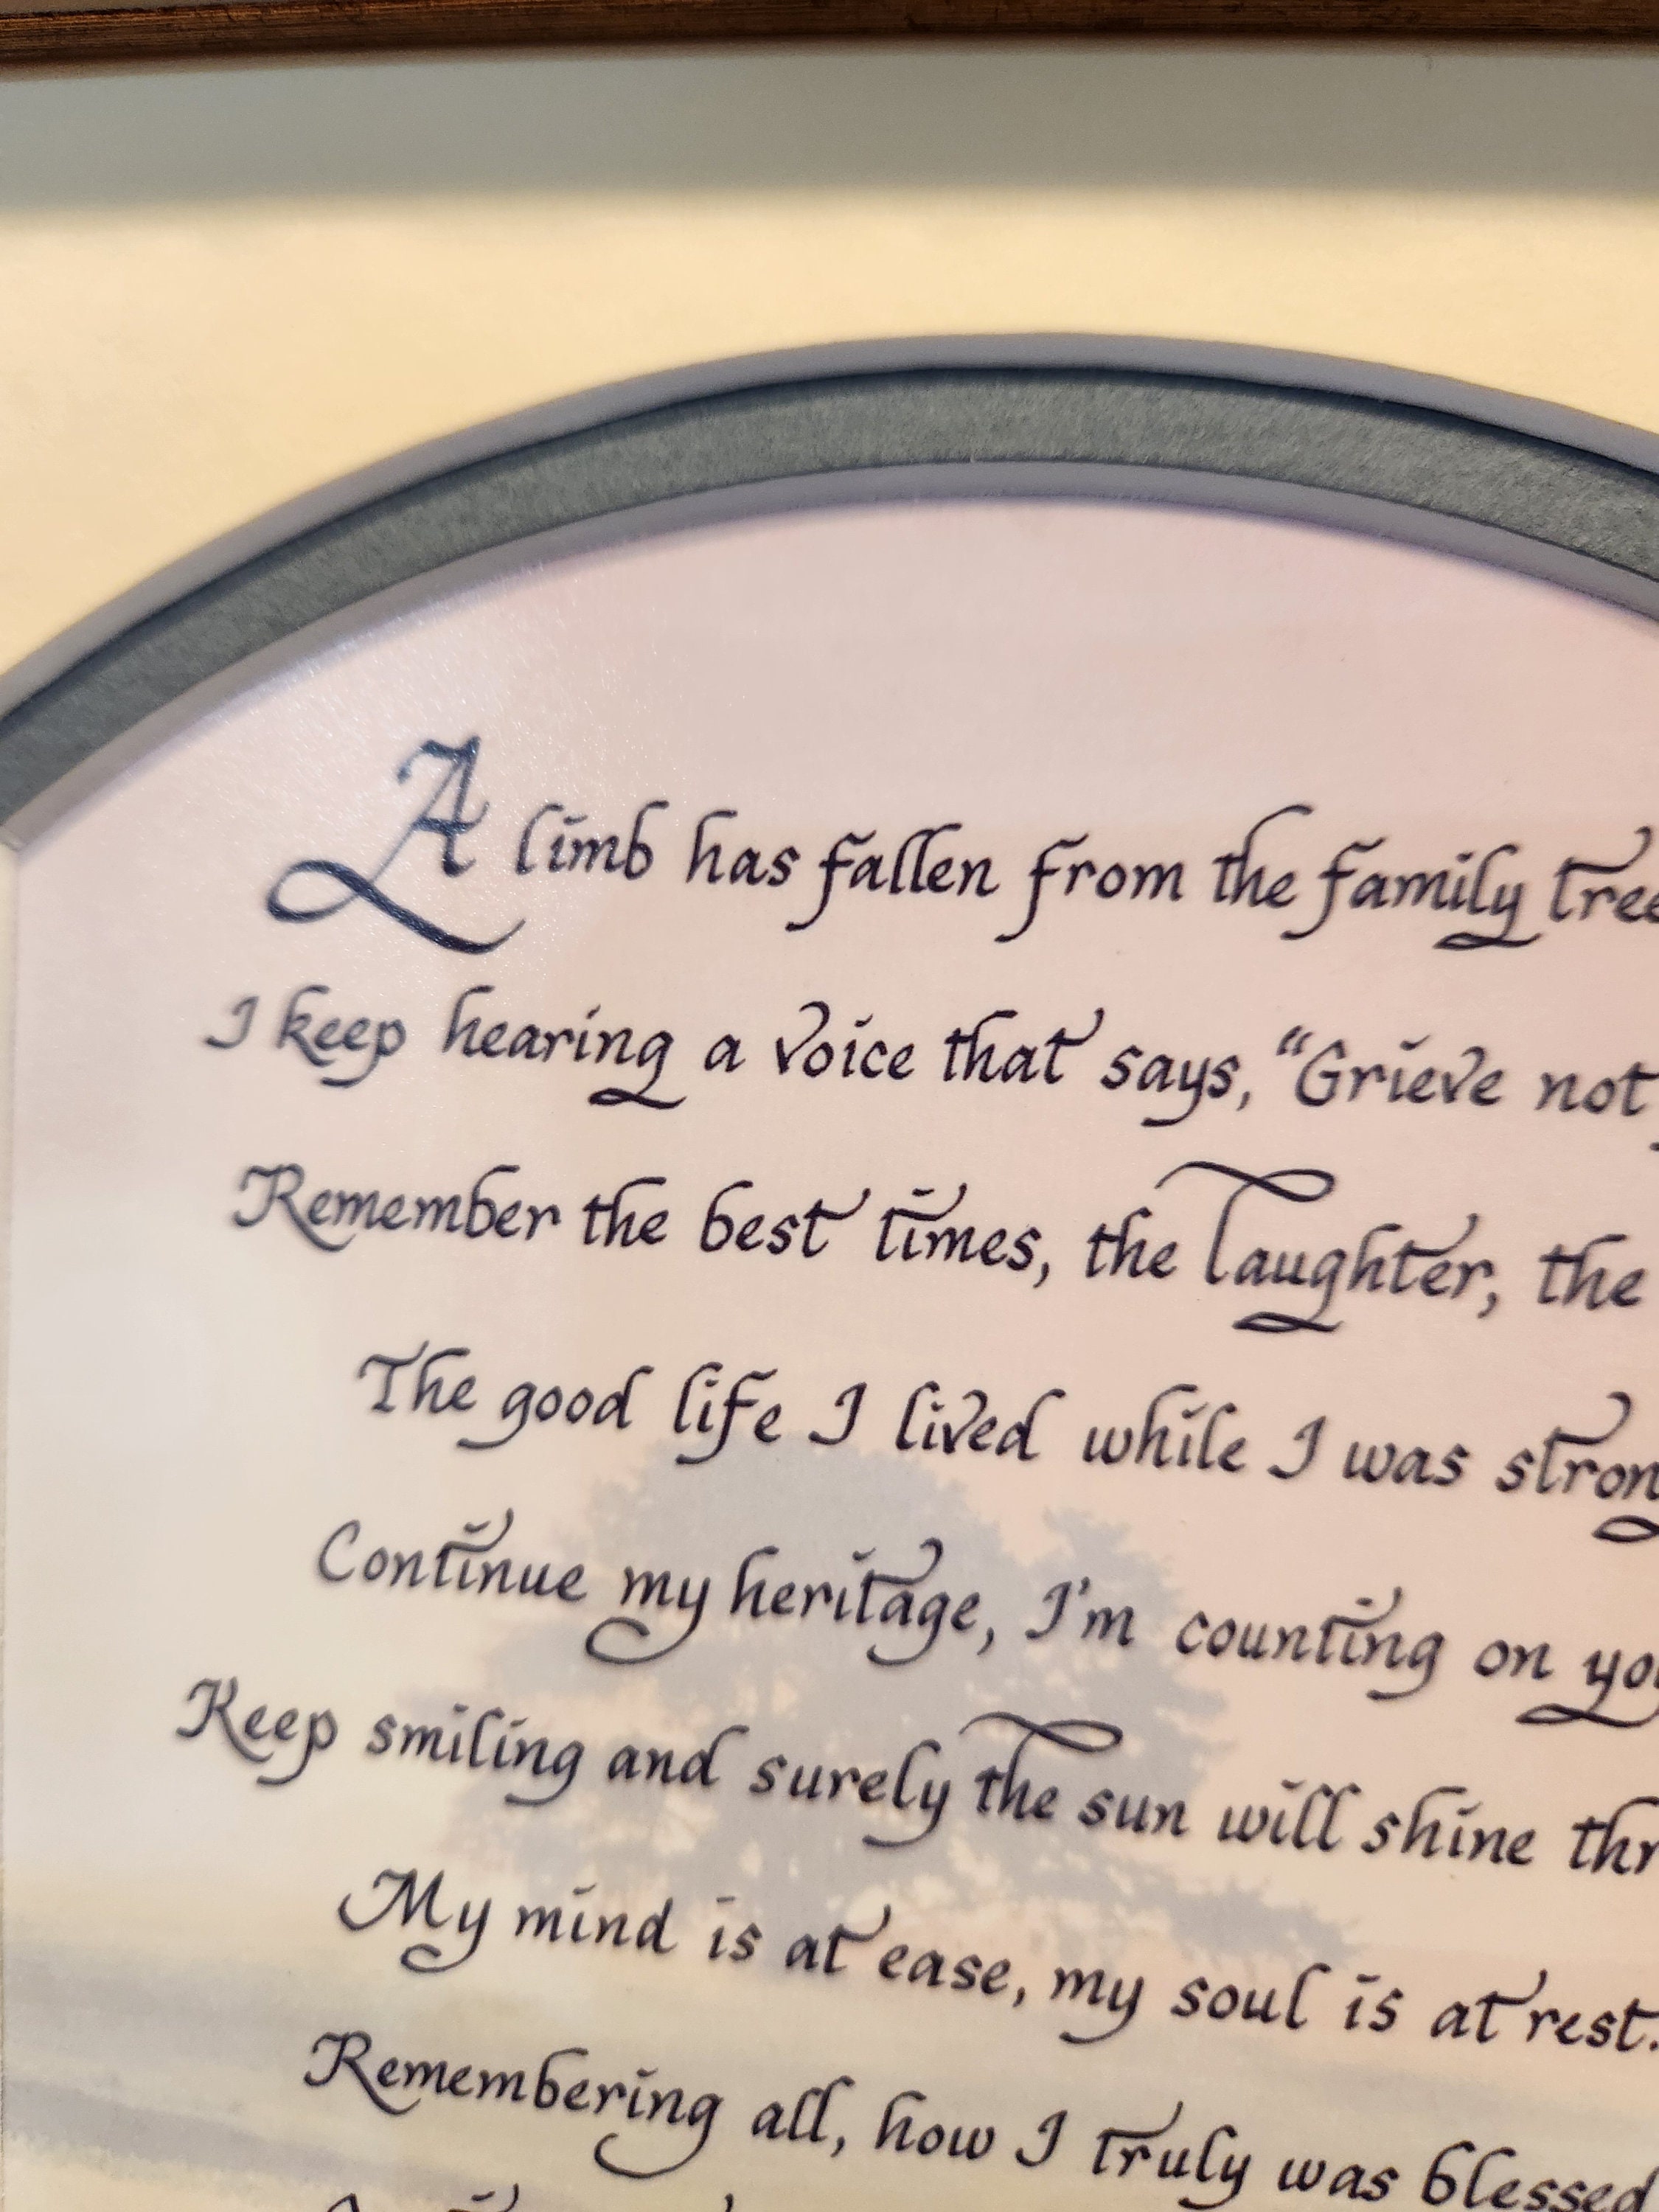 A limb has fallen from the family tree
I keep hearing a voice that says, "Grieve not
Remember the best times, the laughter, the
The good life I lived while I was stron
Continue my heritage, I'm counting on yo
Keep smiling and surely the sun will shine thr
My mind is at ease, my soul is at rest.
Remembering all, how I truly was blessed